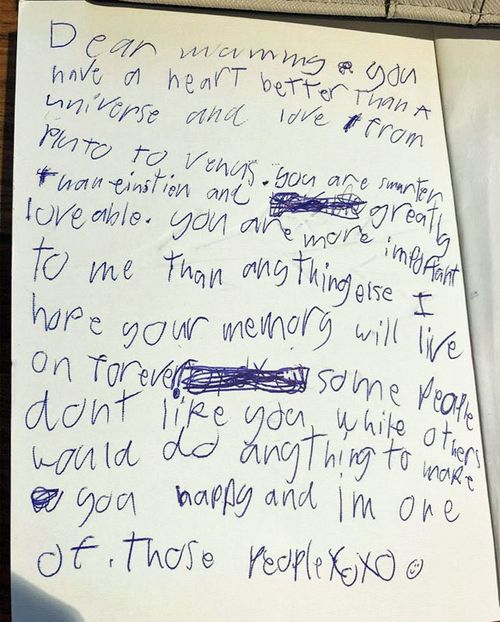 Dear mummy you
have a heart better Than A
universe and love from
Pluto to venus. you are smarter
than einstion and greatly
loveable. you are more important
to me than anything else I
hope your memory will live
on forever! some people
dont like you, while others
would do anything to make
you happy and im one
of. those peopleXoXO☺